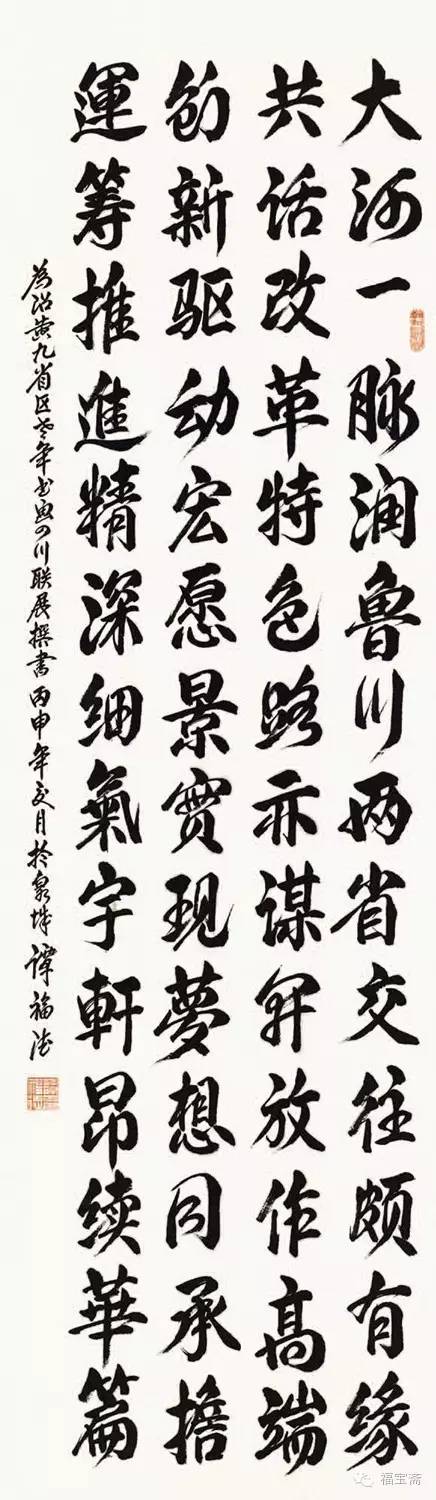 大河一脉润鲁川两省交往颇有缘
共话改革特色路亦谋开放作高端
创新驱动宏愿景实现夢想同承担
運筹推進精深细氣宇軒昂续華篇
为沿黄九省区老年书画四川联展撰书丙申年交月於泉城谭福德
福宝斋